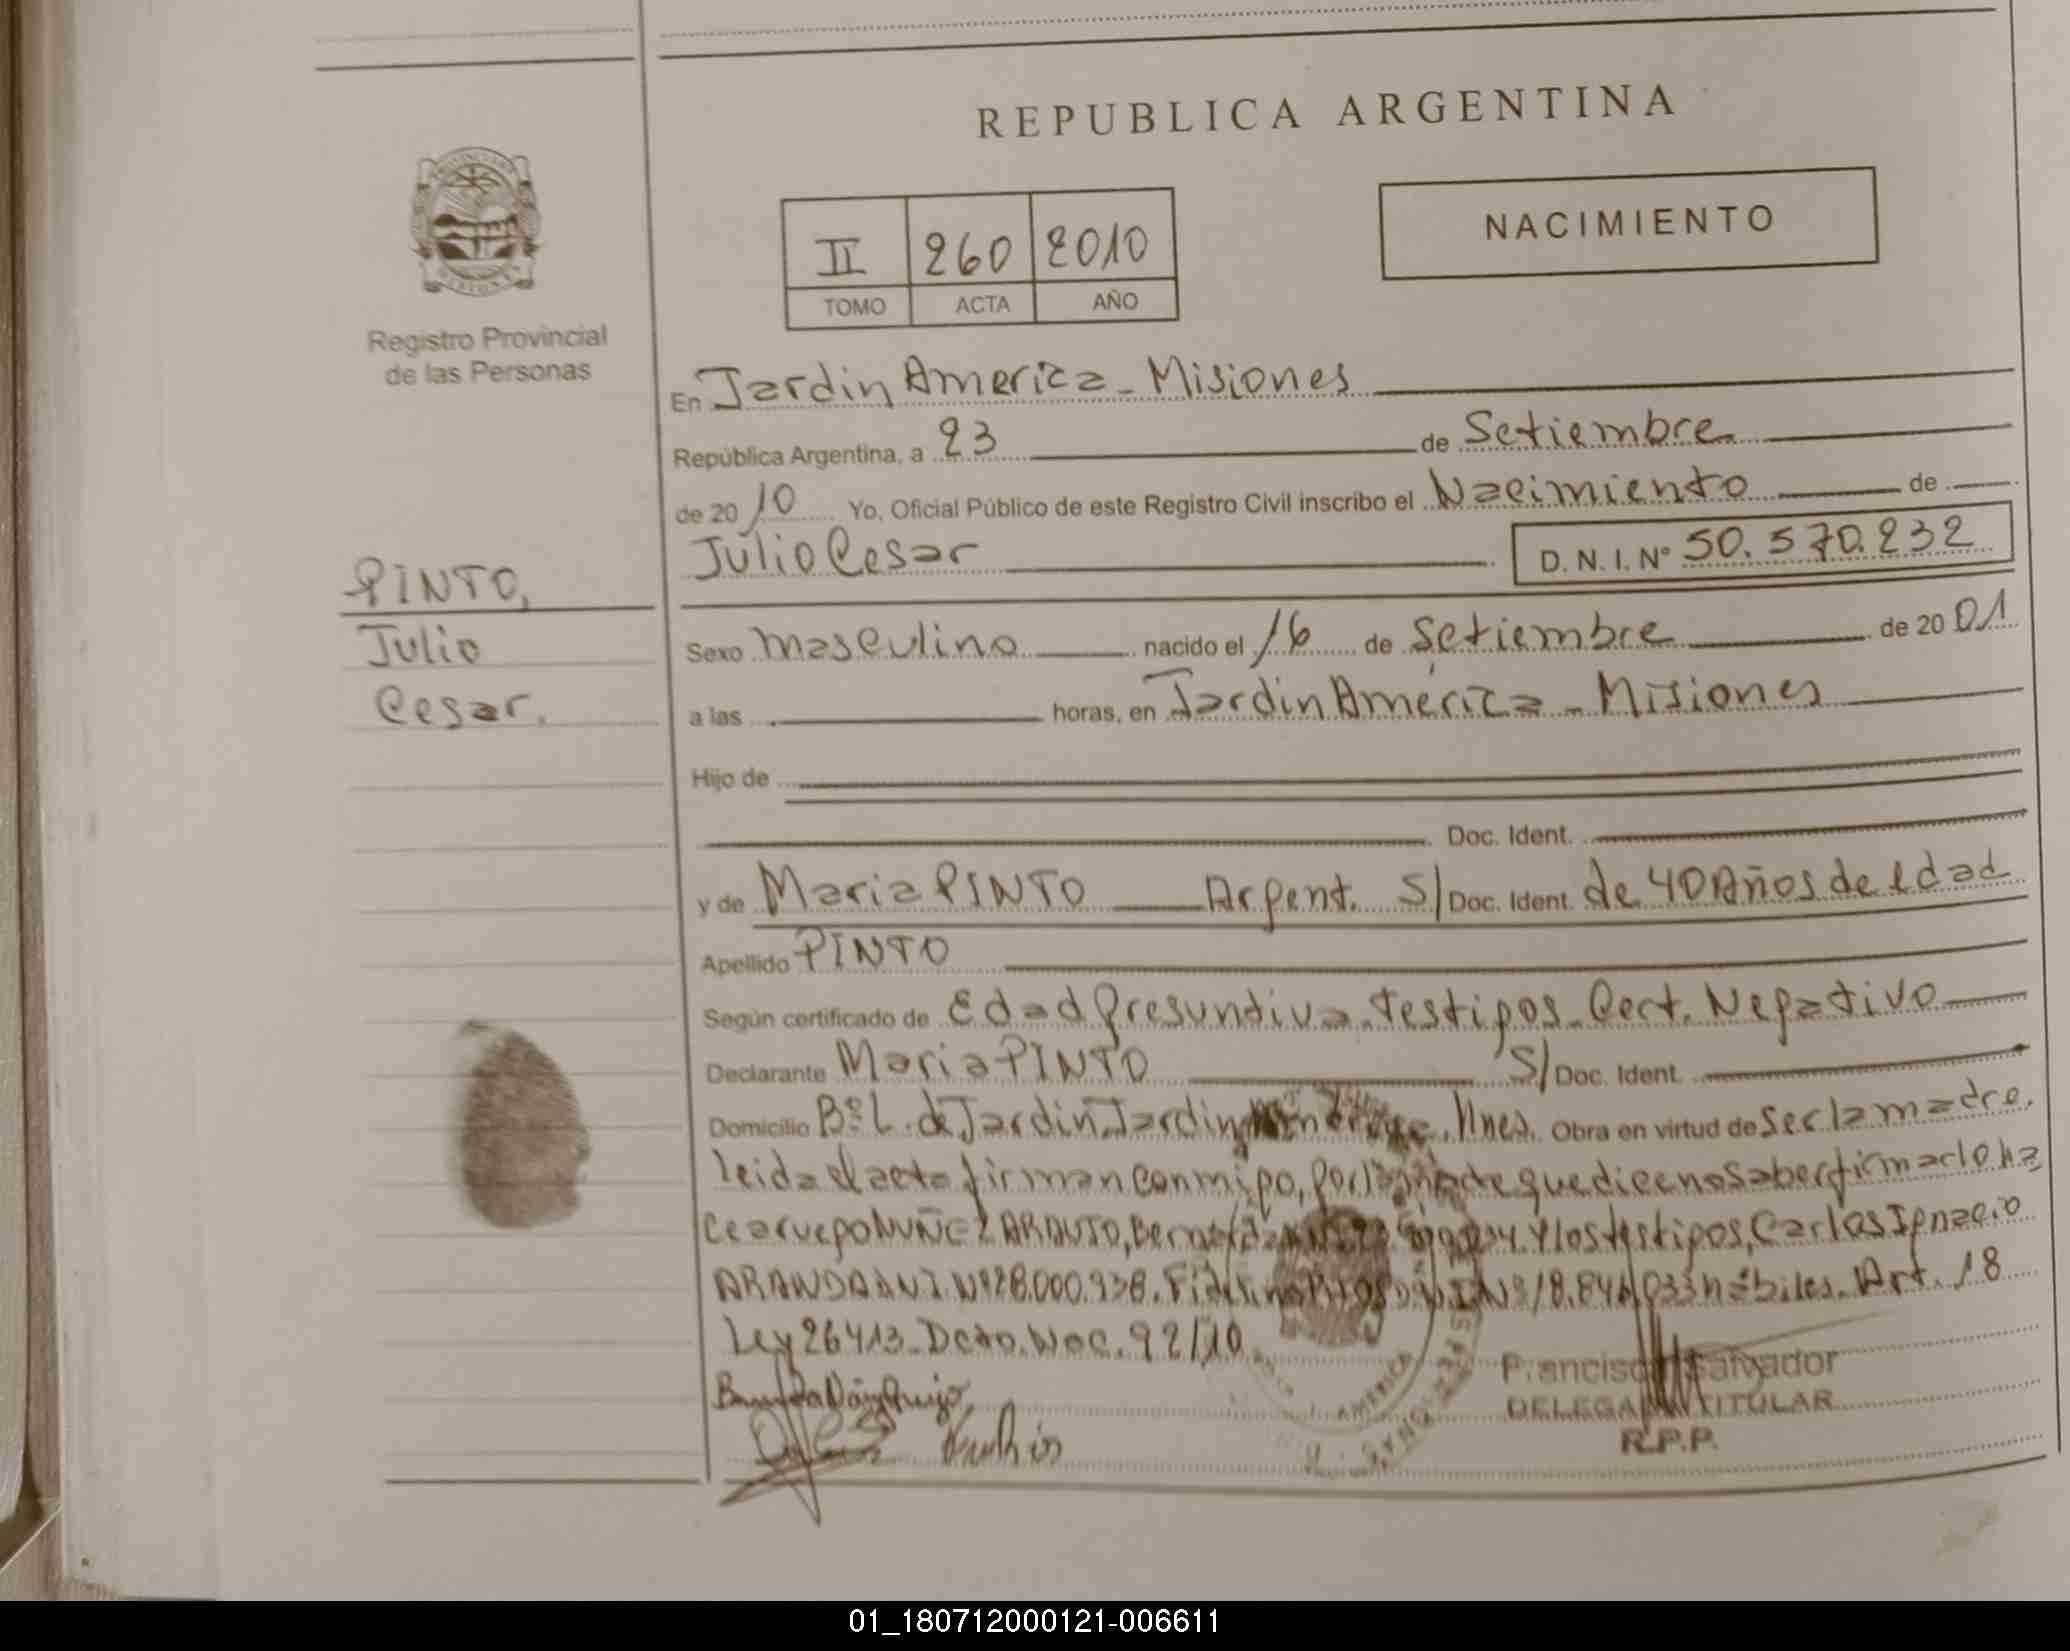 REPUBLICA ARGENTINA
NACIMIENTO
II 260 2010
TOMO ACTA AÑO
Registro Provincial
de las Personas
PINTO,
Julio
Cesar.
En Jardin America - Misiones
República Argentina, a 23 de Setiembre
de 20 10 Yo, Oficial Público de este Registro Civil inscribo el Nacimiento de
Julio Cesar D.N.I. Nº 50.570.232
Sexo masculino nacido el 16 de Setiembre de 20 01
a las horas, en Jardin América - Misiones
Hijo de
Doc. Ident.
y de Maria PINTO Argent. S/ Doc. Ident. de 40 Años de edad
Apellido PINTO
Según certificado de Edad Presuntiva - testigos - Cert. Negativo
Declarante Maria PINTO S/ Doc. Ident.
Domicilio Bº L. de Jardin, Jardin Mnes. Obra en virtud de ser la madre.
leida el acta firman conmigo, por la que dice no saber firmar lo ha
ce a ruego NUÑEZ ARAUJO, y los testigos, Carlos Ignacio
ARANDA DNI Nº 28.000.938. hábiles. Art. 18
Ley 26413 - Dcto. Nac. 92/10
Francisco Salvador
DELEGADO TITULAR
R.P.P.
AMERICA
01_180712000121-006611